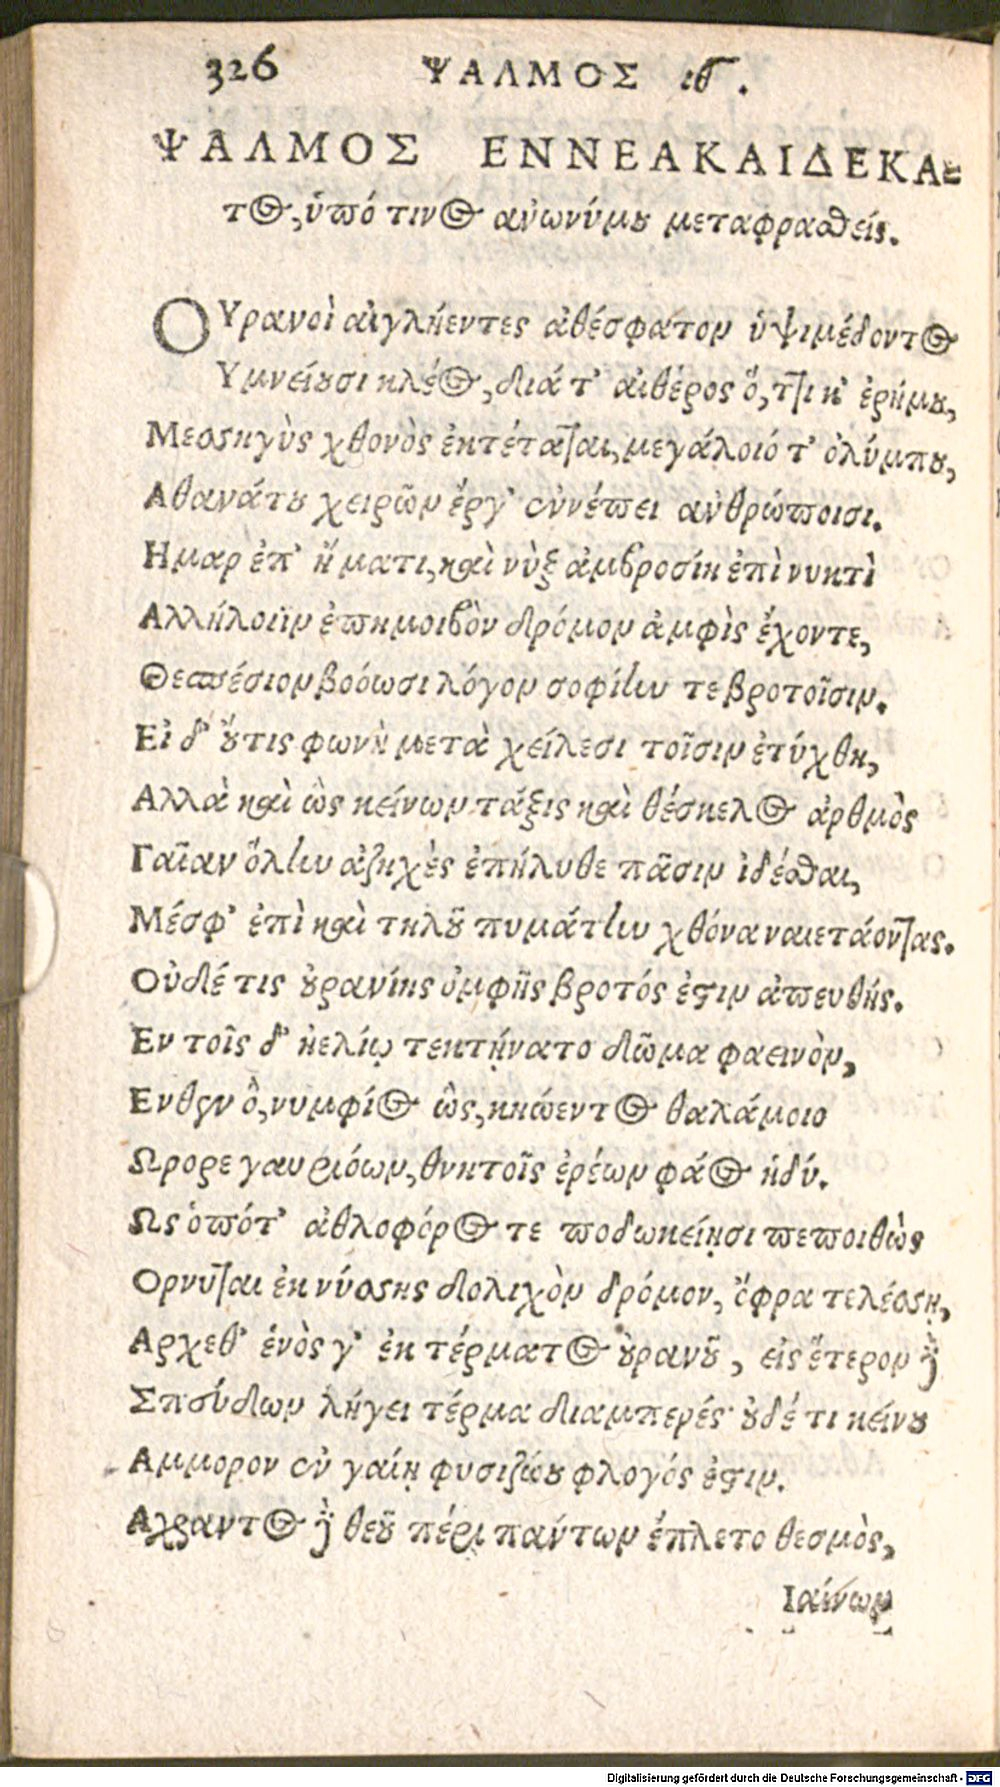 326 ΨΑΛΜΟΣ ιθ.
ΨΑΛΜΟΣ ΕΝΝΕΑΚΑΙΔΕΚΑ=
τος, ὑπό τινος ανωνύμου μεταφρασθείς.
ΟΥρανοὶ αἰγλήεντες ἀθέσφατον ὑψιμέδοντος
Υμνείουσι κλέος, διά τ' αἰθέρος ὅ, τι κ' ἐρήμου,
Μεσσηγὺς χθονὸς ἐκτέταται, μεγάλοιό τ' ὀλύμπου,
Αθανάτου χειρῶν ἔργ' συνέπει ανθρώποισι.
Ημαρ ἐπ' ἤματι, καὶ νὺξ ἀμβροσίη ἐπὶ νυκτὶ
Αλλήλοιϊν ἐπημοιβὸν δρόμον ἀμφὶς ἔχοντε,
Θεσπέσιον βοόωσι λόγον σοφίην τε βροτοῖσιν.
Εἰ δ' οὔτις φωνὴ μετὰ χείλεσι τοῖσιν ἐτύχθη,
Αλλὰ καὶ ὣς κείνων τάξις καὶ θέσκελος ἀρθμὸς
Γαῖαν ὅλην ἀζηχὲς ἐπήλυθε πᾶσιν ἰδέσθαι,
Μέσφ' ἐπὶ καὶ τηλοῦ πυμάτην χθόνα ναιετάοντας.
Οὐδέ τις οὐρανίης ὀμφῆς βροτός ἐστιν ἀπευθής.
Εν τοῖς δ' ἠελίῳ τεκτήνατο δῶμα φαεινὸν,
Ενθεν ὃ, νυμφίος ὣς, κηώεντος θαλάμοιο
Ωρορε γαυριόων, θνητοῖς ἐρέων φάος ἡδύ.
Ως ὁπότ' ἀθλοφόρος τε ποδωκείῃσι πεποιθὼς
Ορνυται ἐκ νύσσης δολιχὸν δρόμον, ὄφρα τελέσσῃ,
Αρχεθ' ἑνὸς γ' ἐκ τέρματος οὐρανοῦ, εἰς ἕτερον δὲ
Σπεύδων λήγει τέρμα διαμπερές· οὐδέ τι κείνου
Αμμορον ἐν γαίῃ φυσιζώου φλογός ἐστιν.
Αχραντος δὲ θεοῦ πέρι πάντων ἔπλετο θεσμὸς,
Ιαίνων
Digitalisierung gefördert durch die Deutsche Forschungsgemeinschaft - DFG